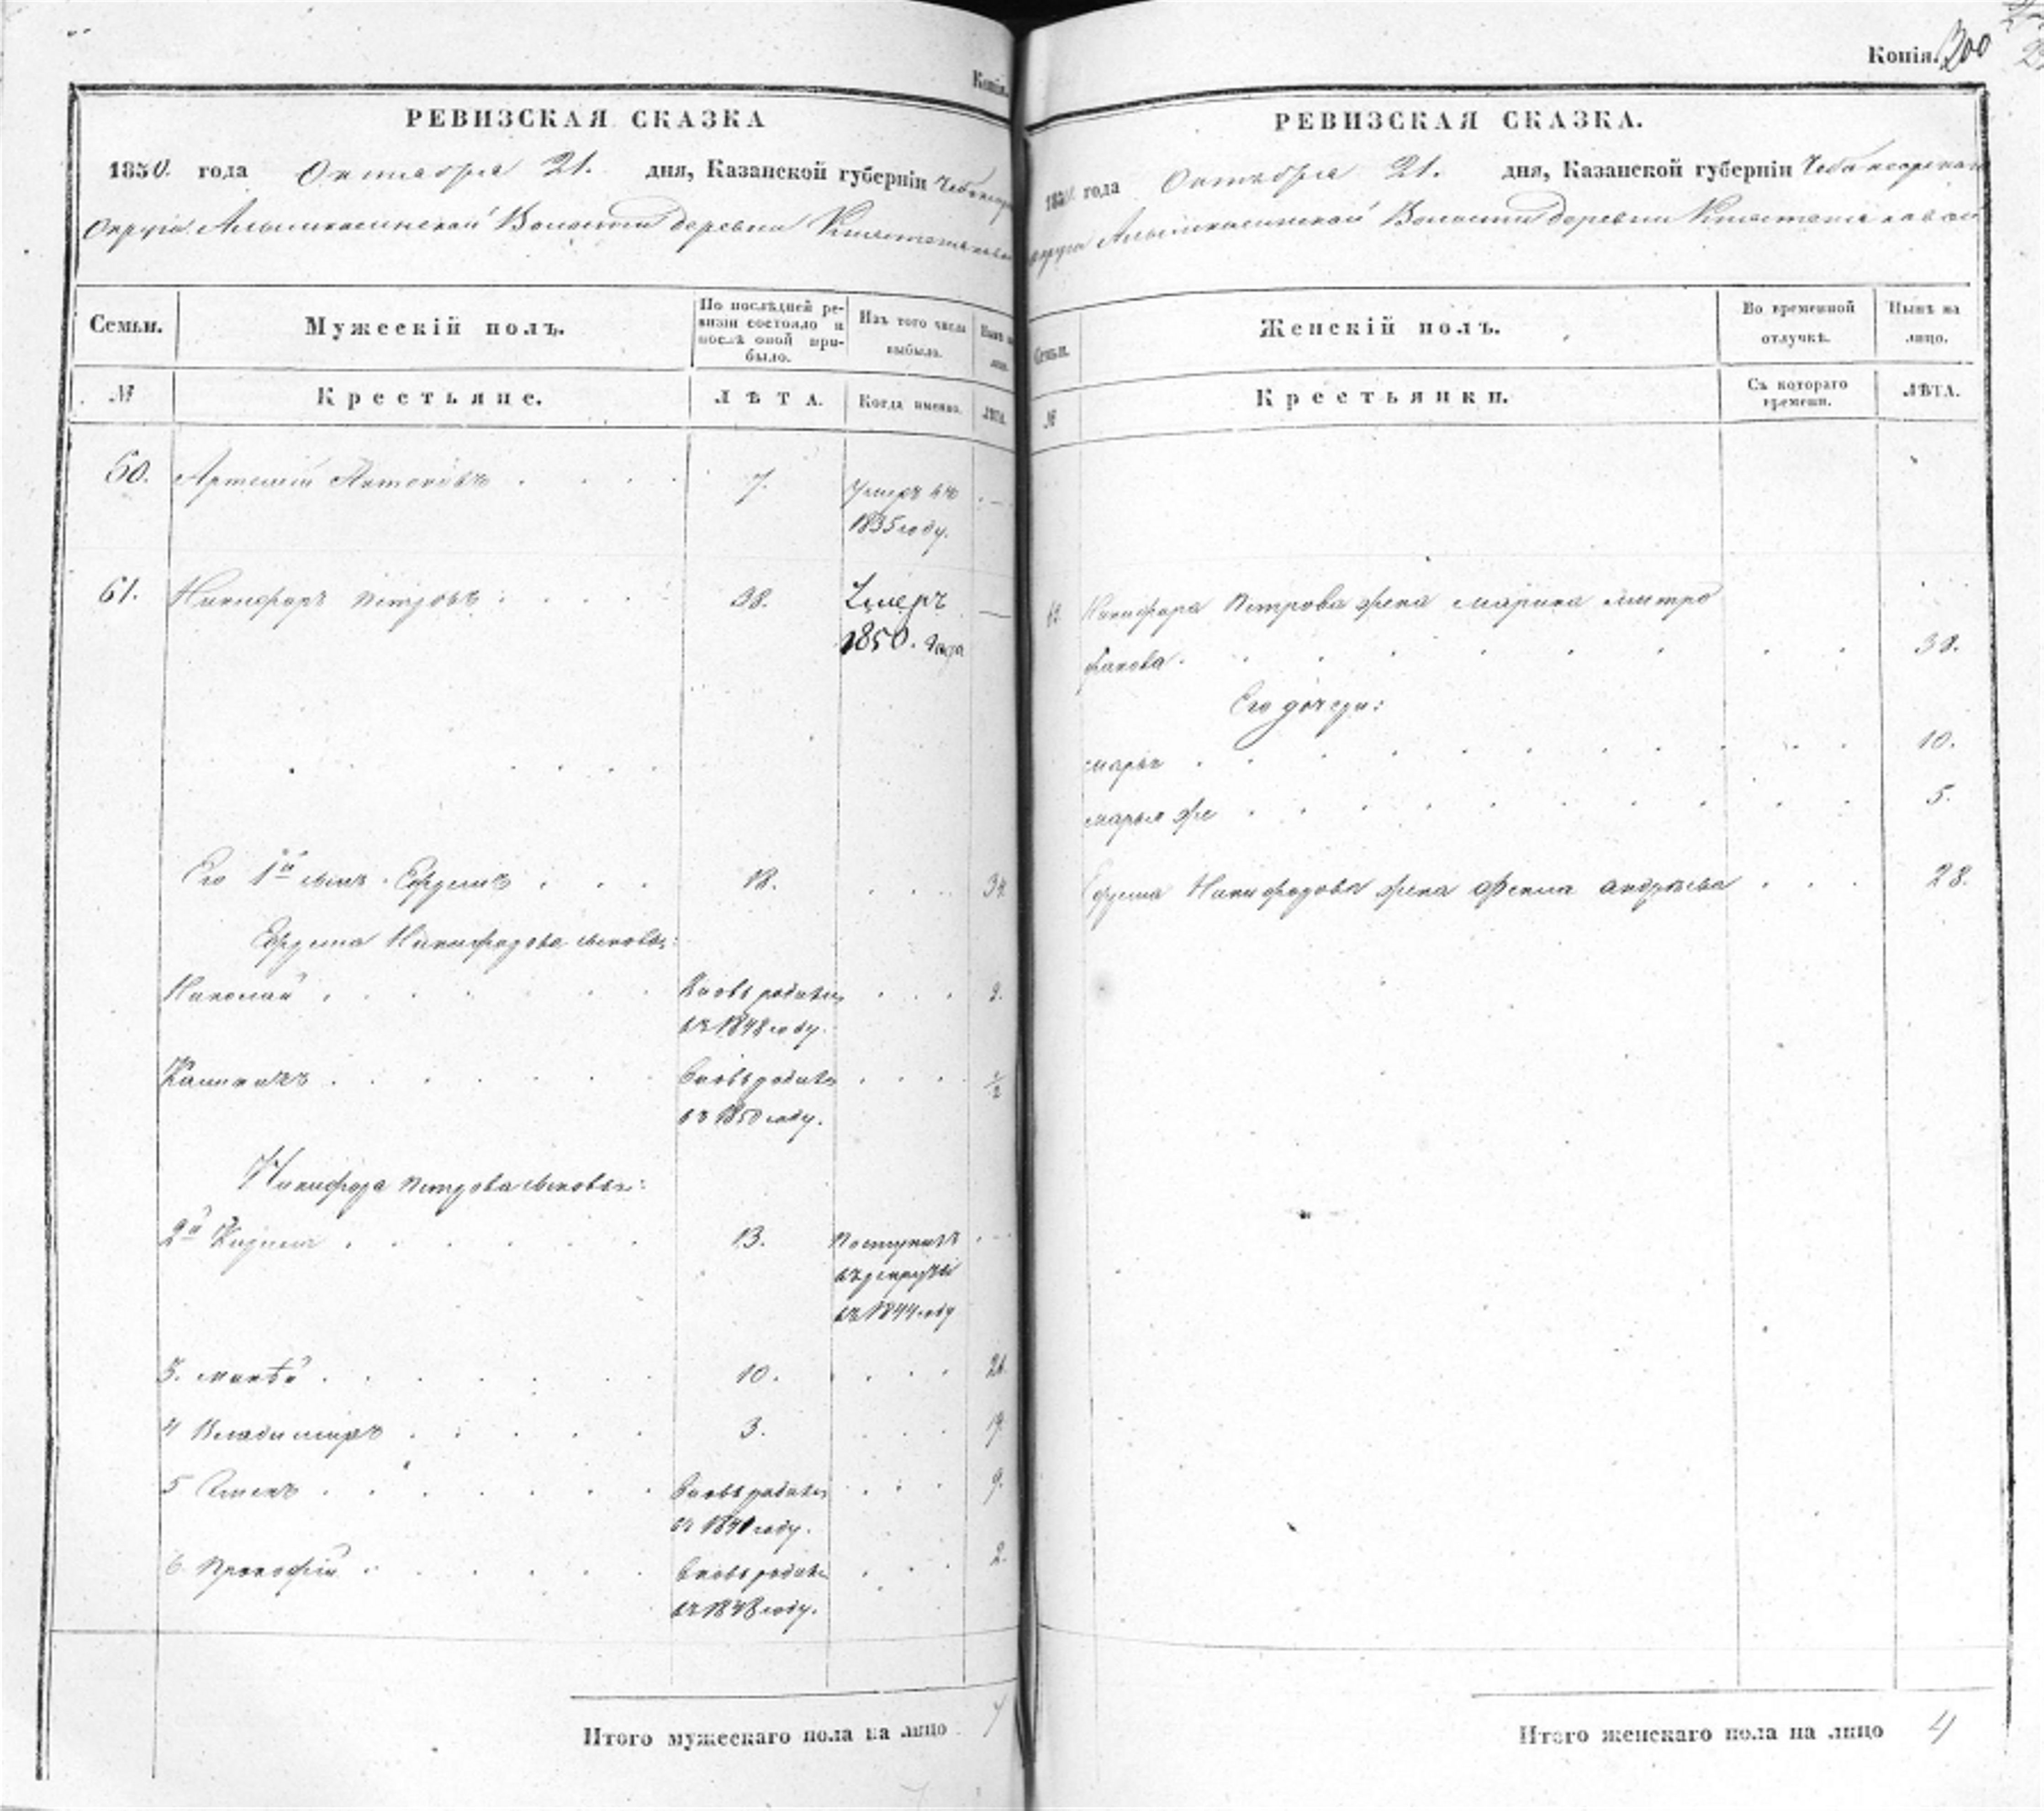 Копія.
РЕВИЗСКАЯ СКАЗКА
1850. года Октября 21. дня, Казанской губерніи Чебоксар
Округа Алымкасинской Волости деревни
Семьи.
Мужескій полъ.
По послѣдней ре-
визіи состояло и
послѣ оной при-
было.
Изъ того числа
выбыло.
Нынѣ на
лицо.
№
Крестьяне.
ЛѢТА.
Когда именно.
ЛѢТА.
60. Артемій Антоновъ . . . . 7. Умеръ въ —
1835 году.
61. Никифоръ Петровъ . . . . 38. Умеръ —
1850. года
Его 1й сынъ Ефремъ . . . 18. . . . 34
Ефрема Никифорова сыновья:
Николай . . . . . . Вновь родился . . . 2.
въ 1848 году.
. . . . . . Вновь родился . . . ½
въ 1850 году.
Никифора Петрова сыновья:
2й . . . . . . 13. Поступилъ . —
въ рекруты
въ 1844 году
3. . . . . . . 10. . . . 26
4 Владимиръ . . . . . 3. . . . 19
5 . . . . . . Вновь родился . . . 9.
въ 1841 году.
6. Прокофій . . . . . Вновь родился . . . 2.
въ 1848 году.
Итого мужескаго пола на лицо 7
Копія. 300
РЕВИЗСКАЯ СКАЗКА.
1850. года Октября 21. дня, Казанской губерніи Чебоксарскаго
округа Алымкасинской Волости деревни
Семьи.
Женскій полъ.
Во временной
отлучкѣ.
Нынѣ на
лицо.
№
Крестьянки.
Съ котораго
времени.
ЛѢТА.
61. Никифора Петрова жена Марина Митро
фанова . . . . . . . . . 38.
Его дочери:
Марья . . . . . . . . . . 10.
Марья же . . . . . . . . . 5.
Ефрема Никифорова жена Фекла Андреева . . . 28.
Итого женскаго пола на лицо 4